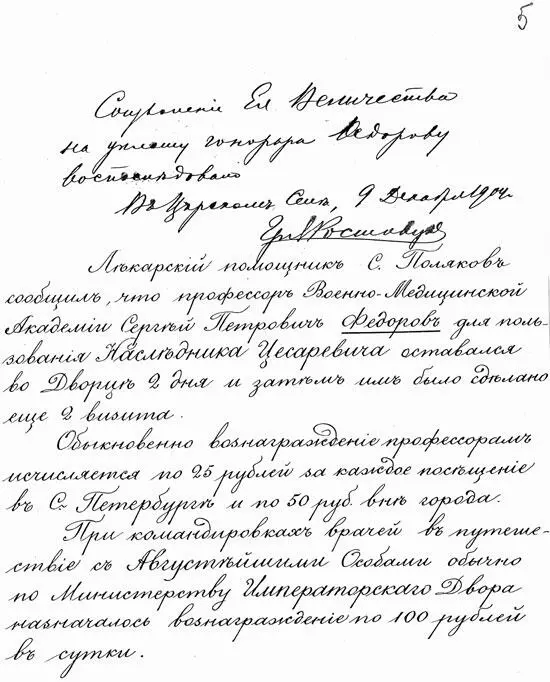 5
Соизволение Ея Величества
на уплату гонорара Федорову
воспоследовало
Въ Царскомъ Селѣ, 9 Декабря 1904 г.
Гр. А Ростовцов
Лѣкарскій помощникъ С. Поляковъ
сообщилъ, что профессоръ Военно-Медицинской
Академіи Сергѣй Петровичъ Федоровъ для поль-
зованія Наслѣдника Цесаревича оставался
во Дворцѣ 2 дня и затѣмъ имъ было сдѣлано
еще 2 визита.
Обыкновенно вознагражденіе профессорамъ
исчисляется по 25 рублей за каждое посѣщеніе
въ С. Петербургѣ и по 50 руб. внѣ города.
При командировкахъ врачей въ путеше-
ствіе съ Августѣйшими Особами обычно
по Министерству Императорскаго Двора
назначалось вознагражденіе по 100 рублей
въ сутки.